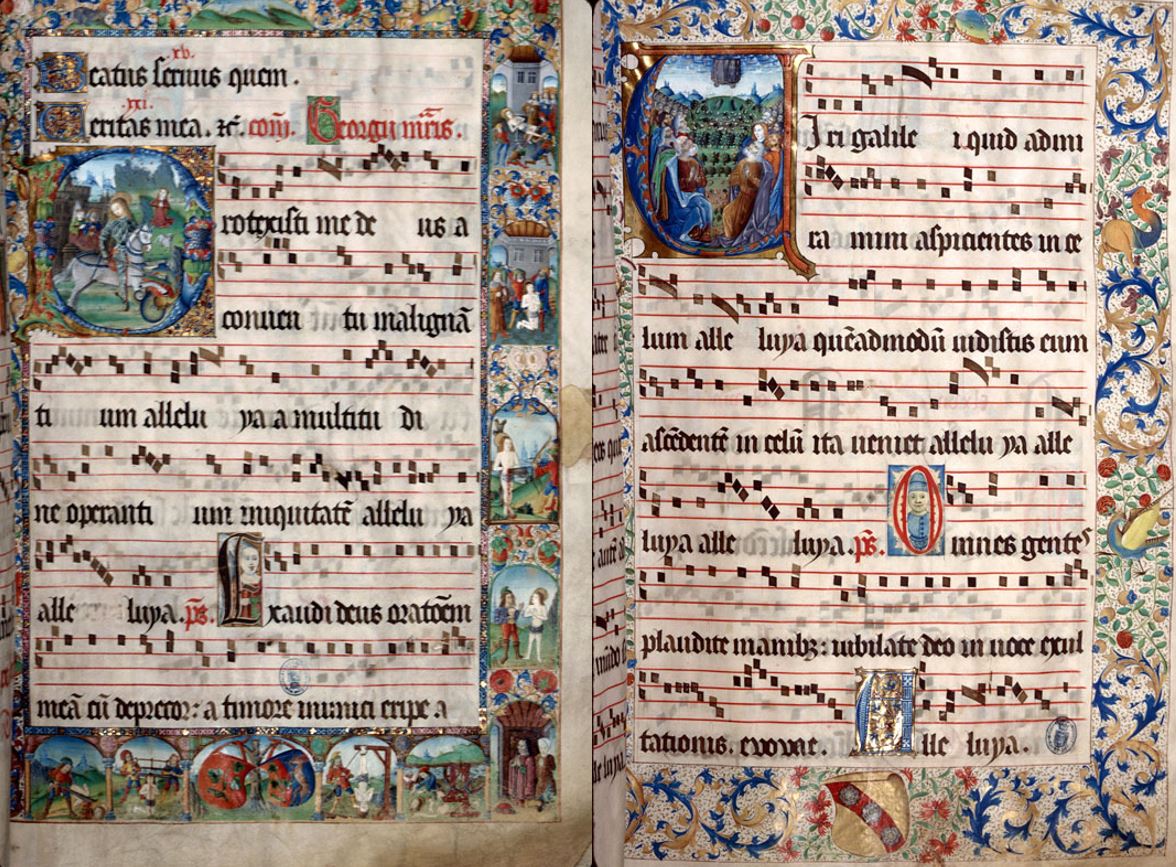 xv.
Beatus seruus quem.
xxi.
Veritas mea. Georgij mr̄is.
Protexisti me de us a
conuen tu malignā
ti um allelu ya a multitu di
ne operanti um iniquitatē allelu ya
alle luya. ps̄. Exaudi deus oratōem
meā cū deprecor: a timore inimici eripe a
Uiri galile i quid admi
ra mini aspicientes in ce
lum alle luya quēadmodū uidistis eum
ascēdentē in celū ita ueniet allelu ya alle
luya alle luya. ps̄. Omnes gentes
plaudite manibꝫ: iubilate deo in uoce exul
tationis. euouae. Alle luya.